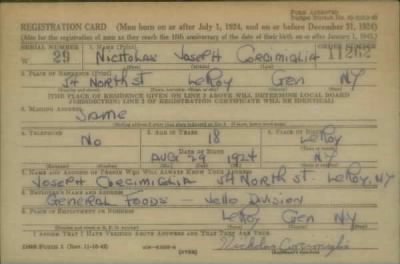 REGISTRATION CARD—(Men born on or after July 1, 1924, and on or before December 31, 1924)
(Also for the registration of men as they reach the 18th anniversary of the date of their birth on or after January 1, 1943.)
SERIAL NUMBER 1. NAME (Print) ORDER NUMBER
W 29 NICHOLAS JOSEPH CORCIMIGLIA 11262
2. PLACE OF RESIDENCE (Print)
54 NORTH ST LEROY GEN NY
[THE PLACE OF RESIDENCE GIVEN ON LINE 2 ABOVE WILL DETERMINE LOCAL BOARD
JURISDICTION; LINE 2 OF REGISTRATION CERTIFICATE WILL BE IDENTICAL]
3. MAILING ADDRESS
SAME
4. TELEPHONE 5. AGE IN YEARS 6. PLACE OF BIRTH
NO 18 LEROY
DATE OF BIRTH
AUG 29 1924 NY
7. NAME AND ADDRESS OF PERSON WHO WILL ALWAYS KNOW YOUR ADDRESS
JOSEPH CORCIMIGLIA 54 NORTH ST. LEROY, NY
8. EMPLOYER'S NAME AND ADDRESS
GENERAL FOODS - JELLO DIVISION
9. PLACE OF EMPLOYMENT OR BUSINESS
LEROY GEN NY
I AFFIRM THAT I HAVE VERIFIED ABOVE ANSWERS AND THAT THEY ARE TRUE.
DSS FORM 1 (Rev. 11-16-42) (OVER) Nicholas Corcimiglia